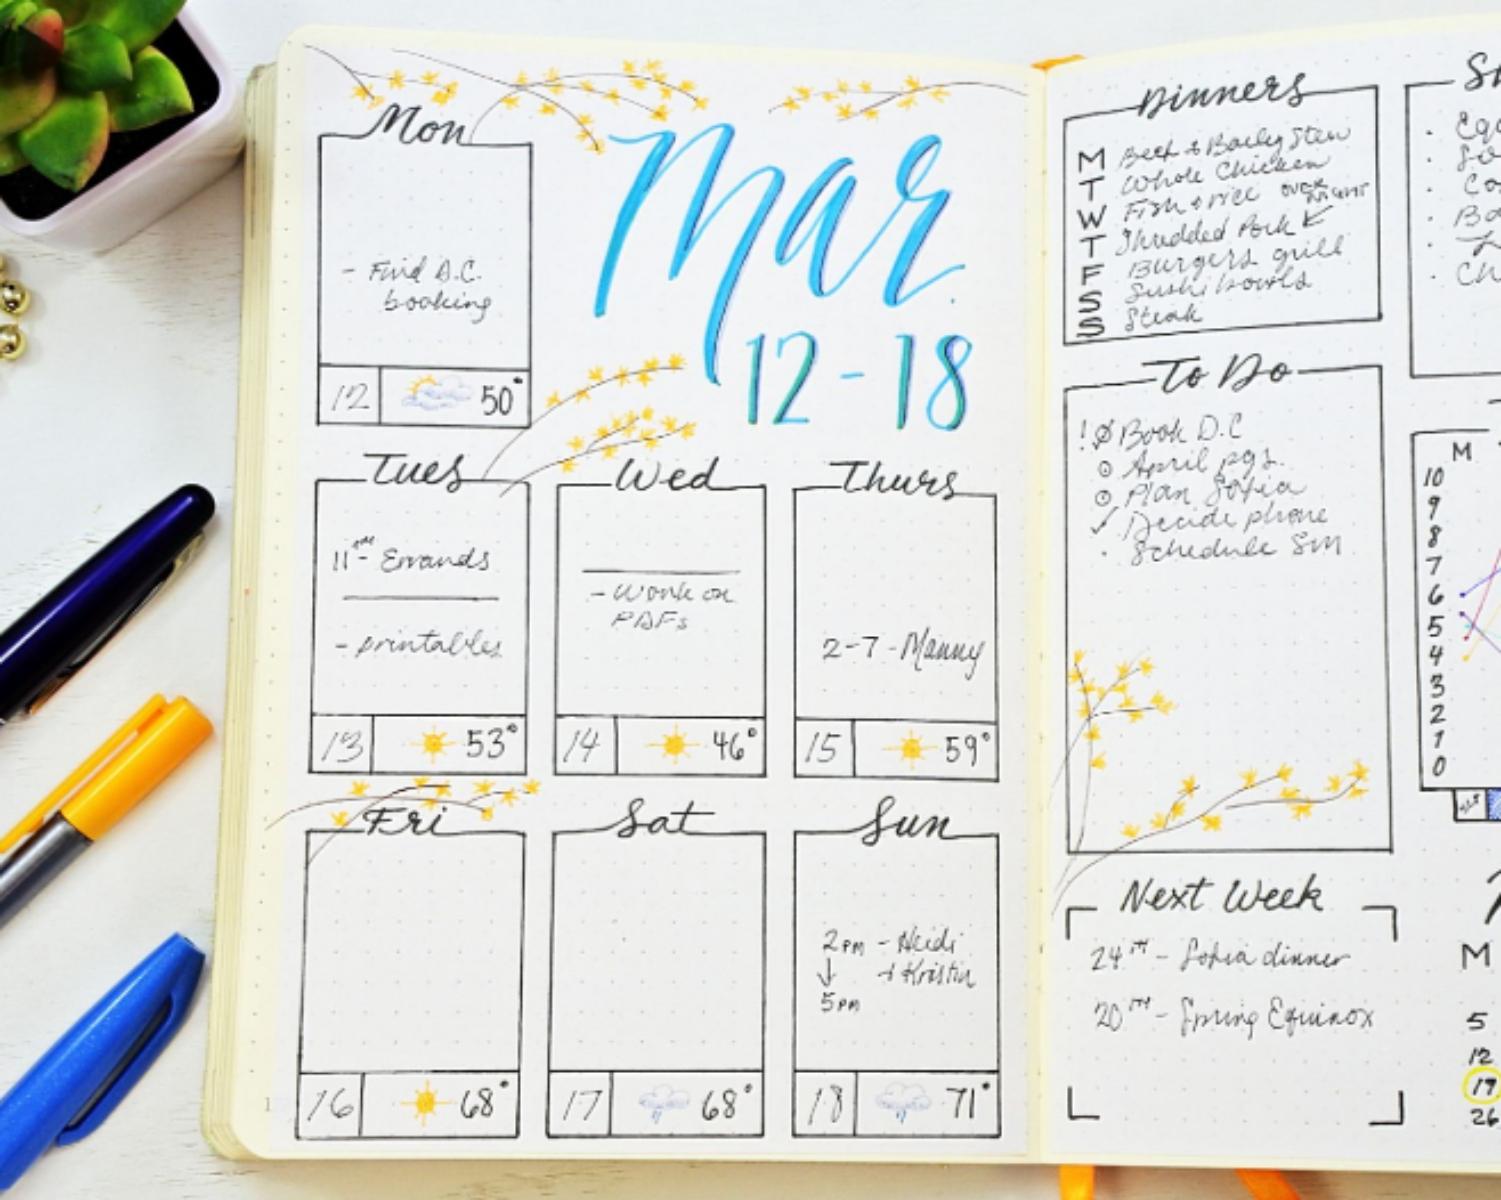 Mon
Mar.
12-18
- Find D.C.
booking
12 50°
Tues
11am - Errands
- printables
13 53°
Wed
- Work on
PDFs
14 46°
Thurs
2-7 - Manny
15 59°
Fri
16 68°
Sat
17 68°
Sun
2pm - Heidi
↓ + Kristin
5pm
18 71°
Dinners
M Beef & Barley Stew
T Whole Chicken
W Fish + rice over night
T Shredded Pork
F Burgers grill
S Sushi bowls
S Steak
To Do
! Book D.C
April pgs.
Plan Sofia
✓ Decide phone
· Schedule SM
Next Week
24th - Sofia dinner
20th - Spring Equinox
M
10
9
8
7
6
5
4
3
2
1
0
M
5
12
19
26